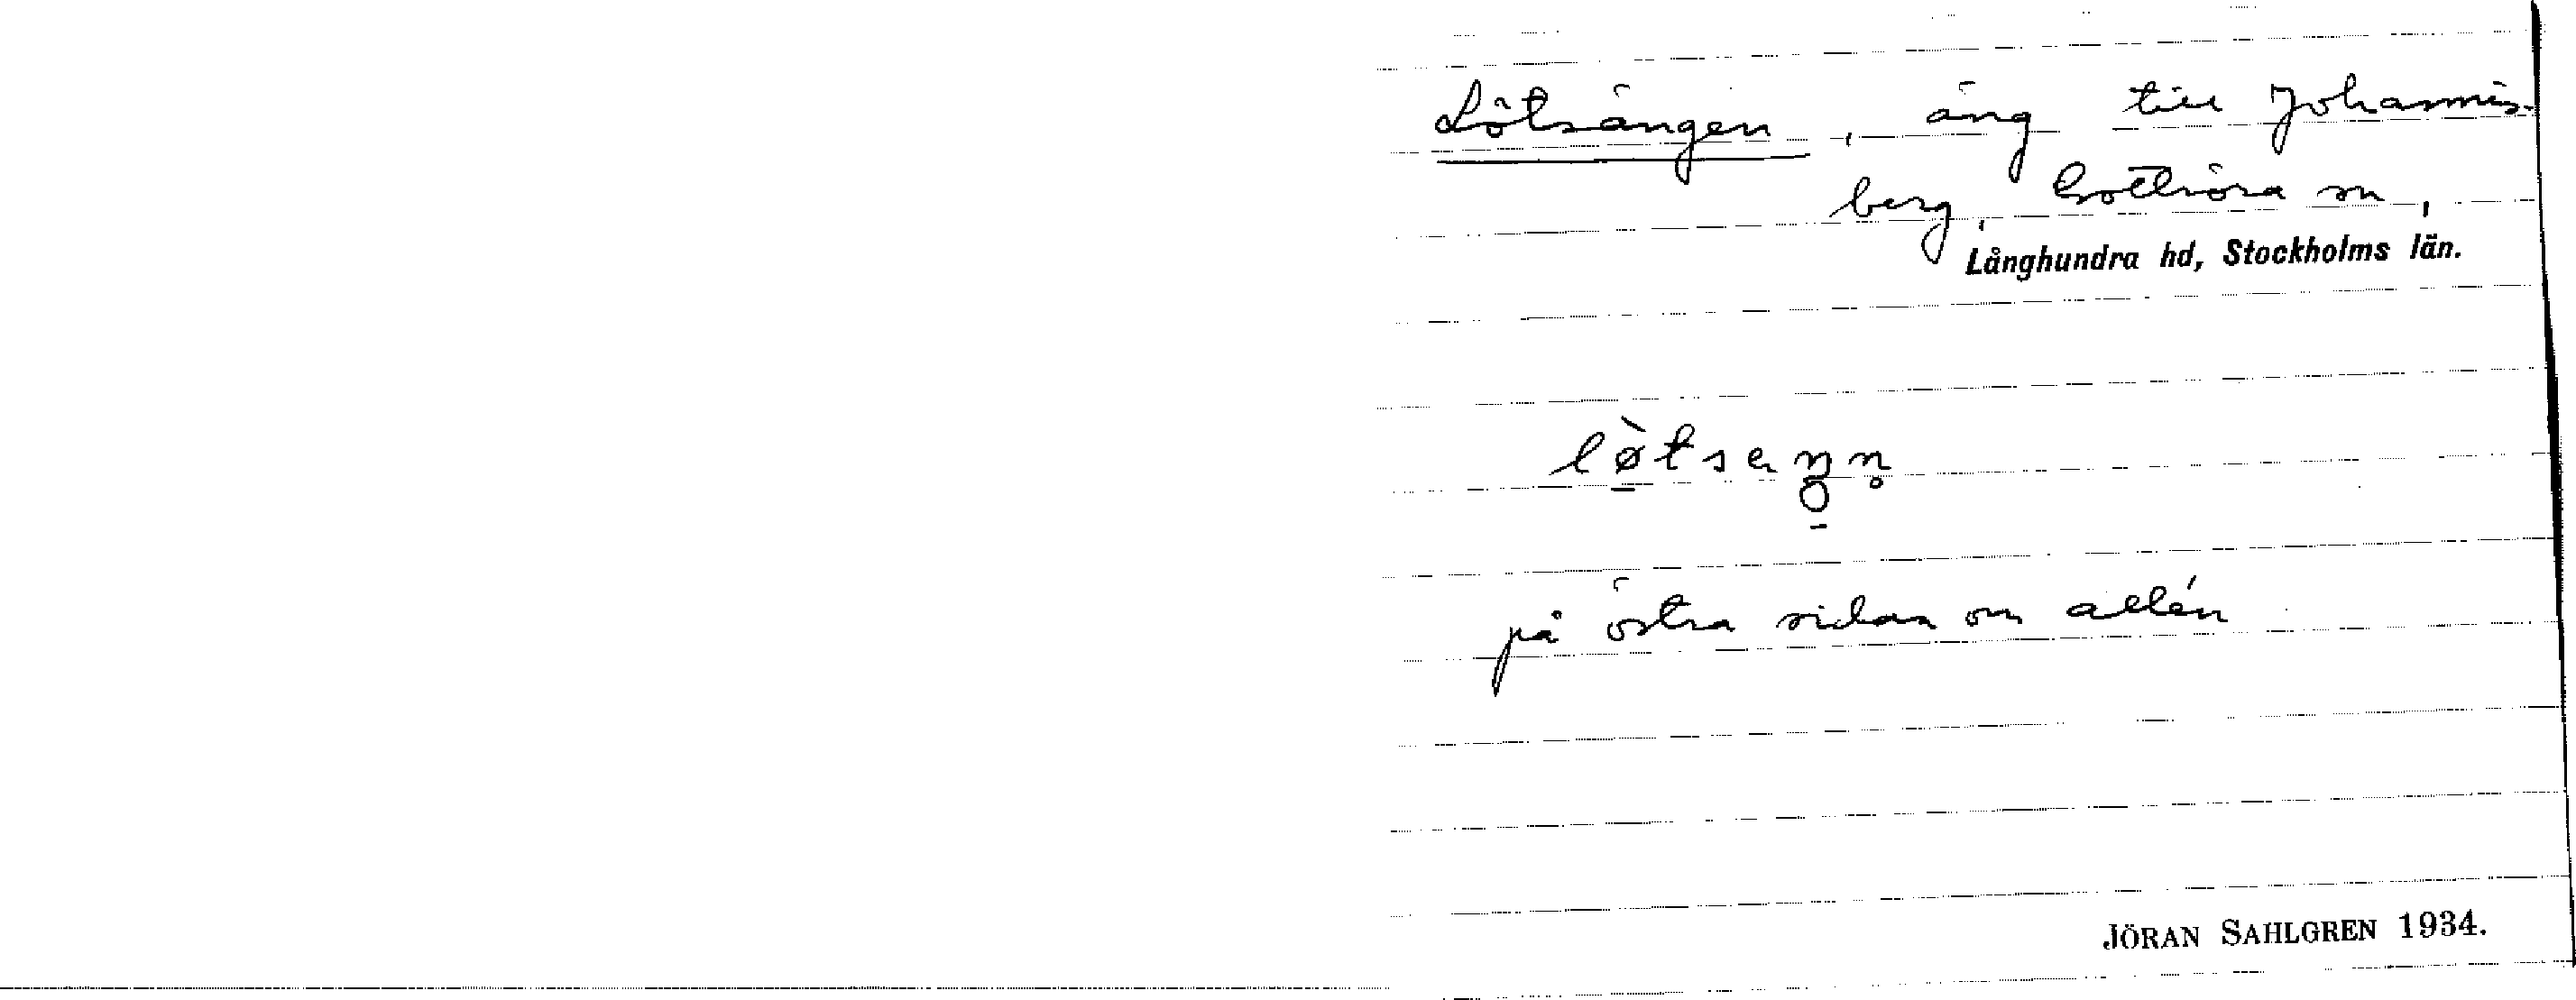 Lötsängen, äng till Johannis-
berg, Gottröra sn,
Långhundra hd, Stockholms län.
lø̀tseŋn̥
på östra sidan om allén
JÖRAN SAHLGREN 1934.